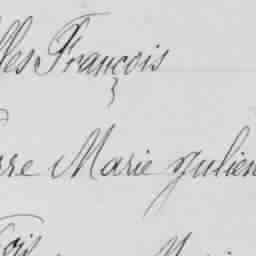 lles François
rre Marie Julien